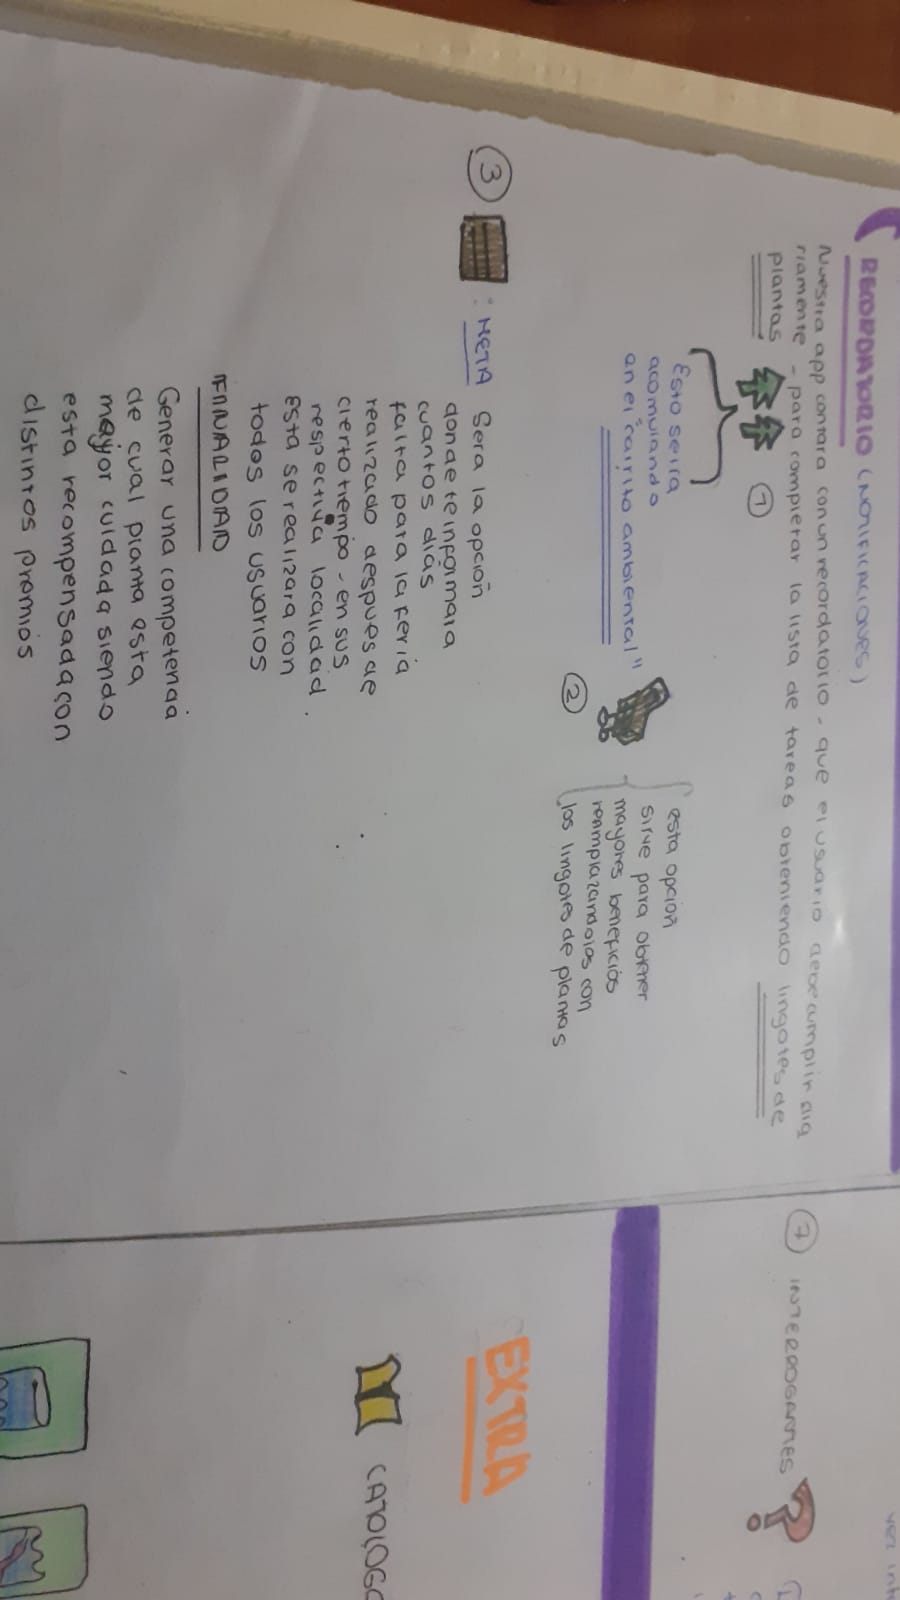 RECORDATORIO (NOTIFICACIONES)
Nuestra app contara con un recordatorio - que el usuario debe cumplir dia
riamente - para completar la lista de tareas obteniendo lingotes de
plantas
1
Esto seira
acomulando
en el "carrito ambiental"
2
esta opcion
sirve para obtener
mayores beneficios
reemplazandolos con
los lingotes de plantas
3 : META Sera la opcion
donde te informara
cuantos dias
falta para la feria
realizado despues de
cierto tiempo - en sus
respectiva localidad.
Esta se realizara con
todos los usuarios
FINALIDAD
Generar una competencia
de cual planta esta
mayor cuidada siendo
esta recompensada con
distintos premios
vez
7 INTERROGANTES ?
EXTRA
CATOLOGO